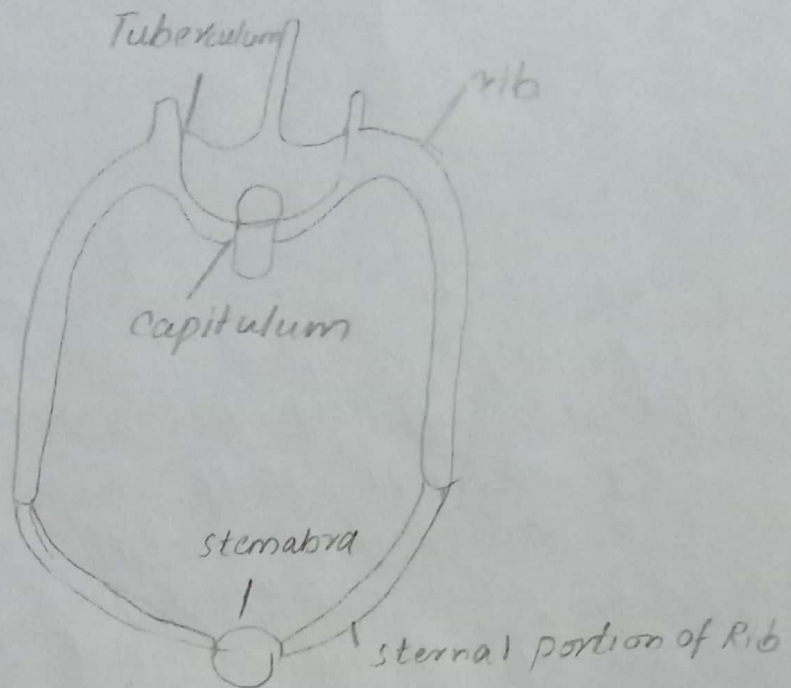 Tuberculum
rib
capitulum
stenabra
sternal portion of Rib